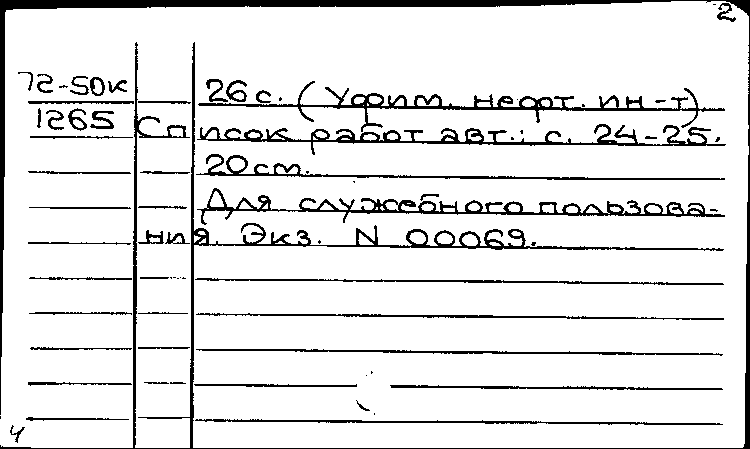 2
72-50к
26 с. (Уфим. нефт. ин-т).
1265
Список работ авт.: с. 24-25.
20 см.
Для служебного пользова-
ния. Экз. N 00069.
ч